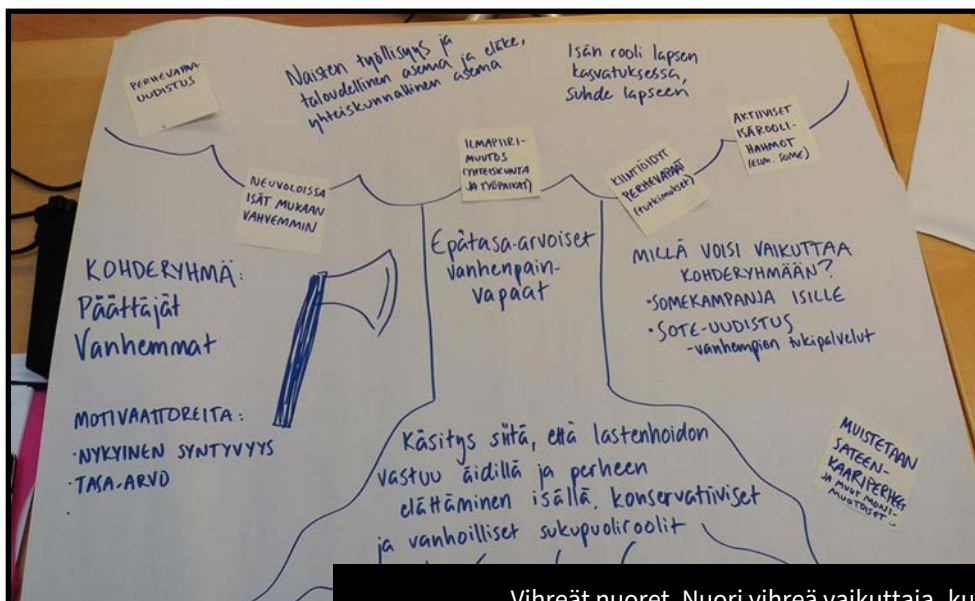 PERHEVAPAA-
UUDISTUS
Naisten työllisyys ja
taloudellinen asema ja eläke,
yhteiskunnallinen asema
Isän rooli lapsen
kasvatuksessa,
suhde lapseen
NEUVOLOISSA
ISÄT MUKAAN
VAHVEMMIN
ILMAPIIRI-
MUUTOS
(YHTEISKUNTA
JA TYÖPAIKAT)
KIINTIÖIDYT
PERHEVAPAAT
(tutkimukset)
AKTIIVISET
ISÄROOLI-
HAHMOT
(ESIM. SOME)
KOHDERYHMÄ:
Päättäjät
Vanhemmat
MOTIVAATTOREITA:
·NYKYINEN SYNTYVYYS
·TASA-ARVO
Epätasa-arvoiset
vanhenpain-
vapaat
MILLÄ VOISI VAIKUTTAA
KOHDERYHMÄÄN?
·SOMEKAMPANJA ISILLE
·SOTE-UUDISTUS
-vanhempien tukipalvelut
Käsitys siitä, että lastenhoidon
vastuu äidillä ja perheen
elättäminen isällä, konservatiiviset
ja vanhoilliset sukupuoliroolit
MUISTETAAN
SATEEN-
KAARIPERHEET
JA MUUT MONI-
MUOTOISET
Vihreät nuoret. Nuori vihreä vaikuttaja, ku